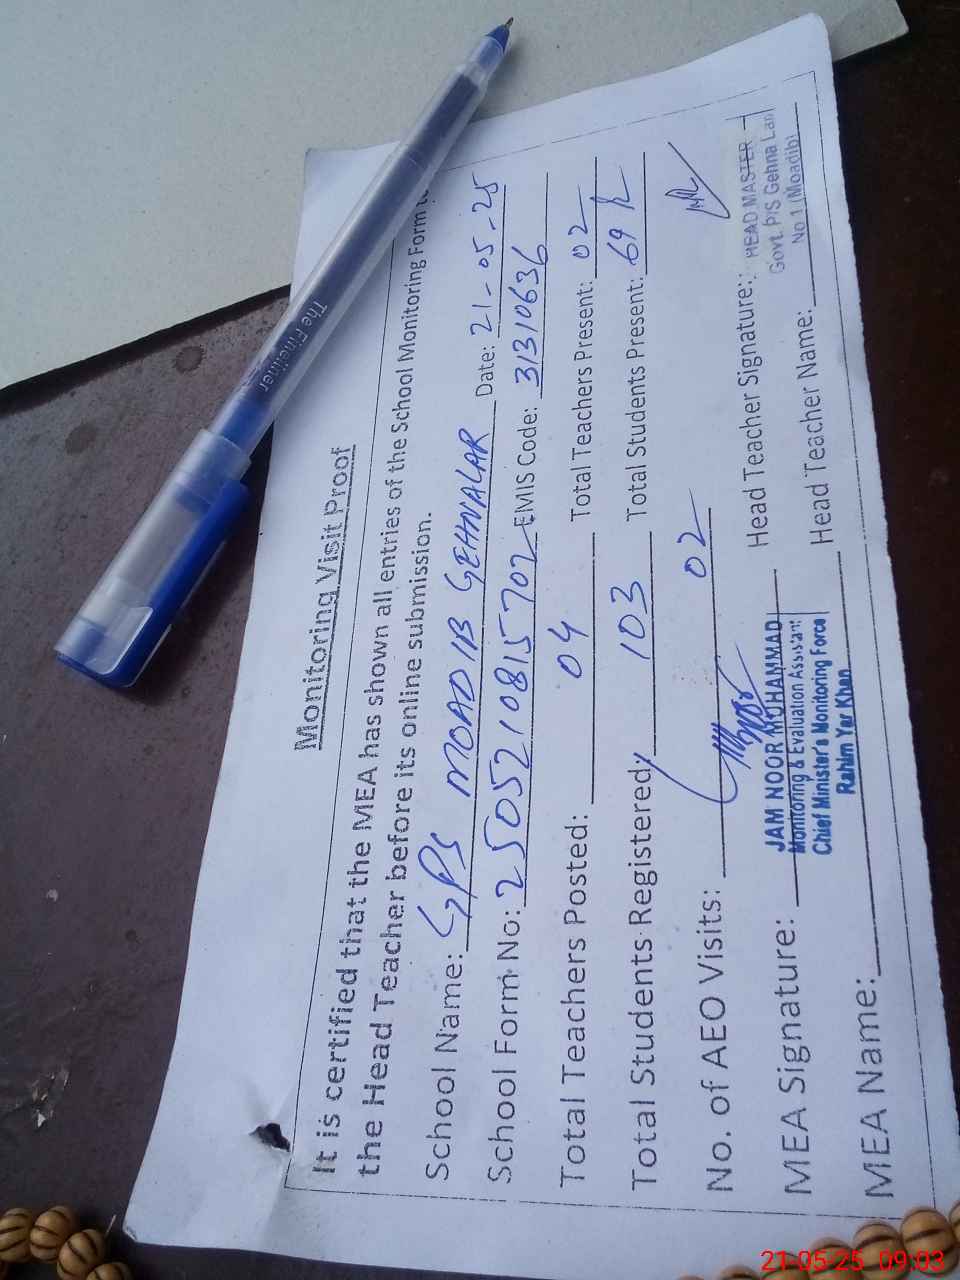 Monitoring Visit Proof
It is certified that the MEA has shown all entries of the School Monitoring Form to
the Head Teacher before its online submission.
School Name: GPS MOADIB GEHNALAR Date: 21-05-25
School Form No: 2505210815702 EMIS Code: 31310636
Total Teachers Posted: 04 Total Teachers Present: 02
Total Students Registered: 103 Total Students Present: 69
No. of AEO Visits: 02
MEA Signature: Head Teacher Signature:
JAM NOOR MUHAMMAD
Monitoring & Evaluation Assistant
Chief Minister's Monitoring Force
Rahim Yar Khan
HEAD MASTER
Govt. P/S Gehna Lar
No 1 (Moadib)
MEA Name: Head Teacher Name:
The Fineliner
21-05-25 09:03